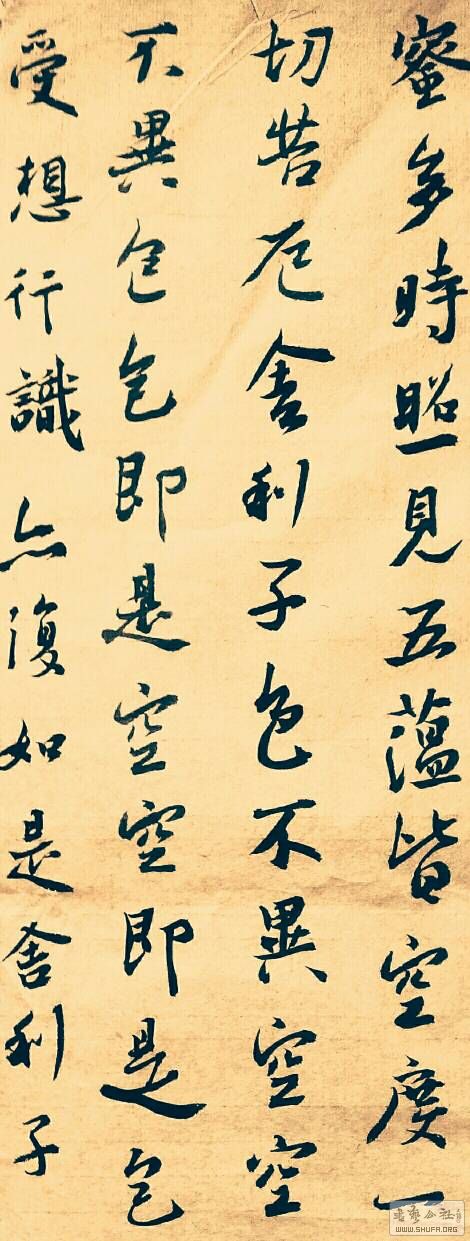 蜜多時照見五蘊皆空度一
切苦厄舍利子色不異空空
不異色色即是空空即是色
受想行識亦復如是舍利子
書藝公社
WWW.SHUFA.ORG